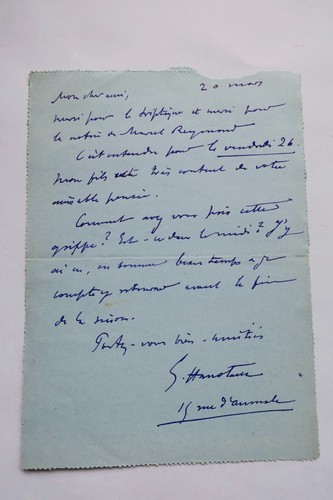 20 mars
Mon cher ami,
merci pour le triptyque et merci pour
la notice de Marcel Reymond
C'est entendu pour le vendredi 26.
Mon fils est très content de votre
aimable pensée.
Comment avez vous pris cette
grippe? Est-ce dans le midi? J'y
ai eu, en somme beau temps et je
compte y retourner avant la fin
de la saison.
Portez-vous bien - amitiés
G. Hanotaux
15 rue d'aumale